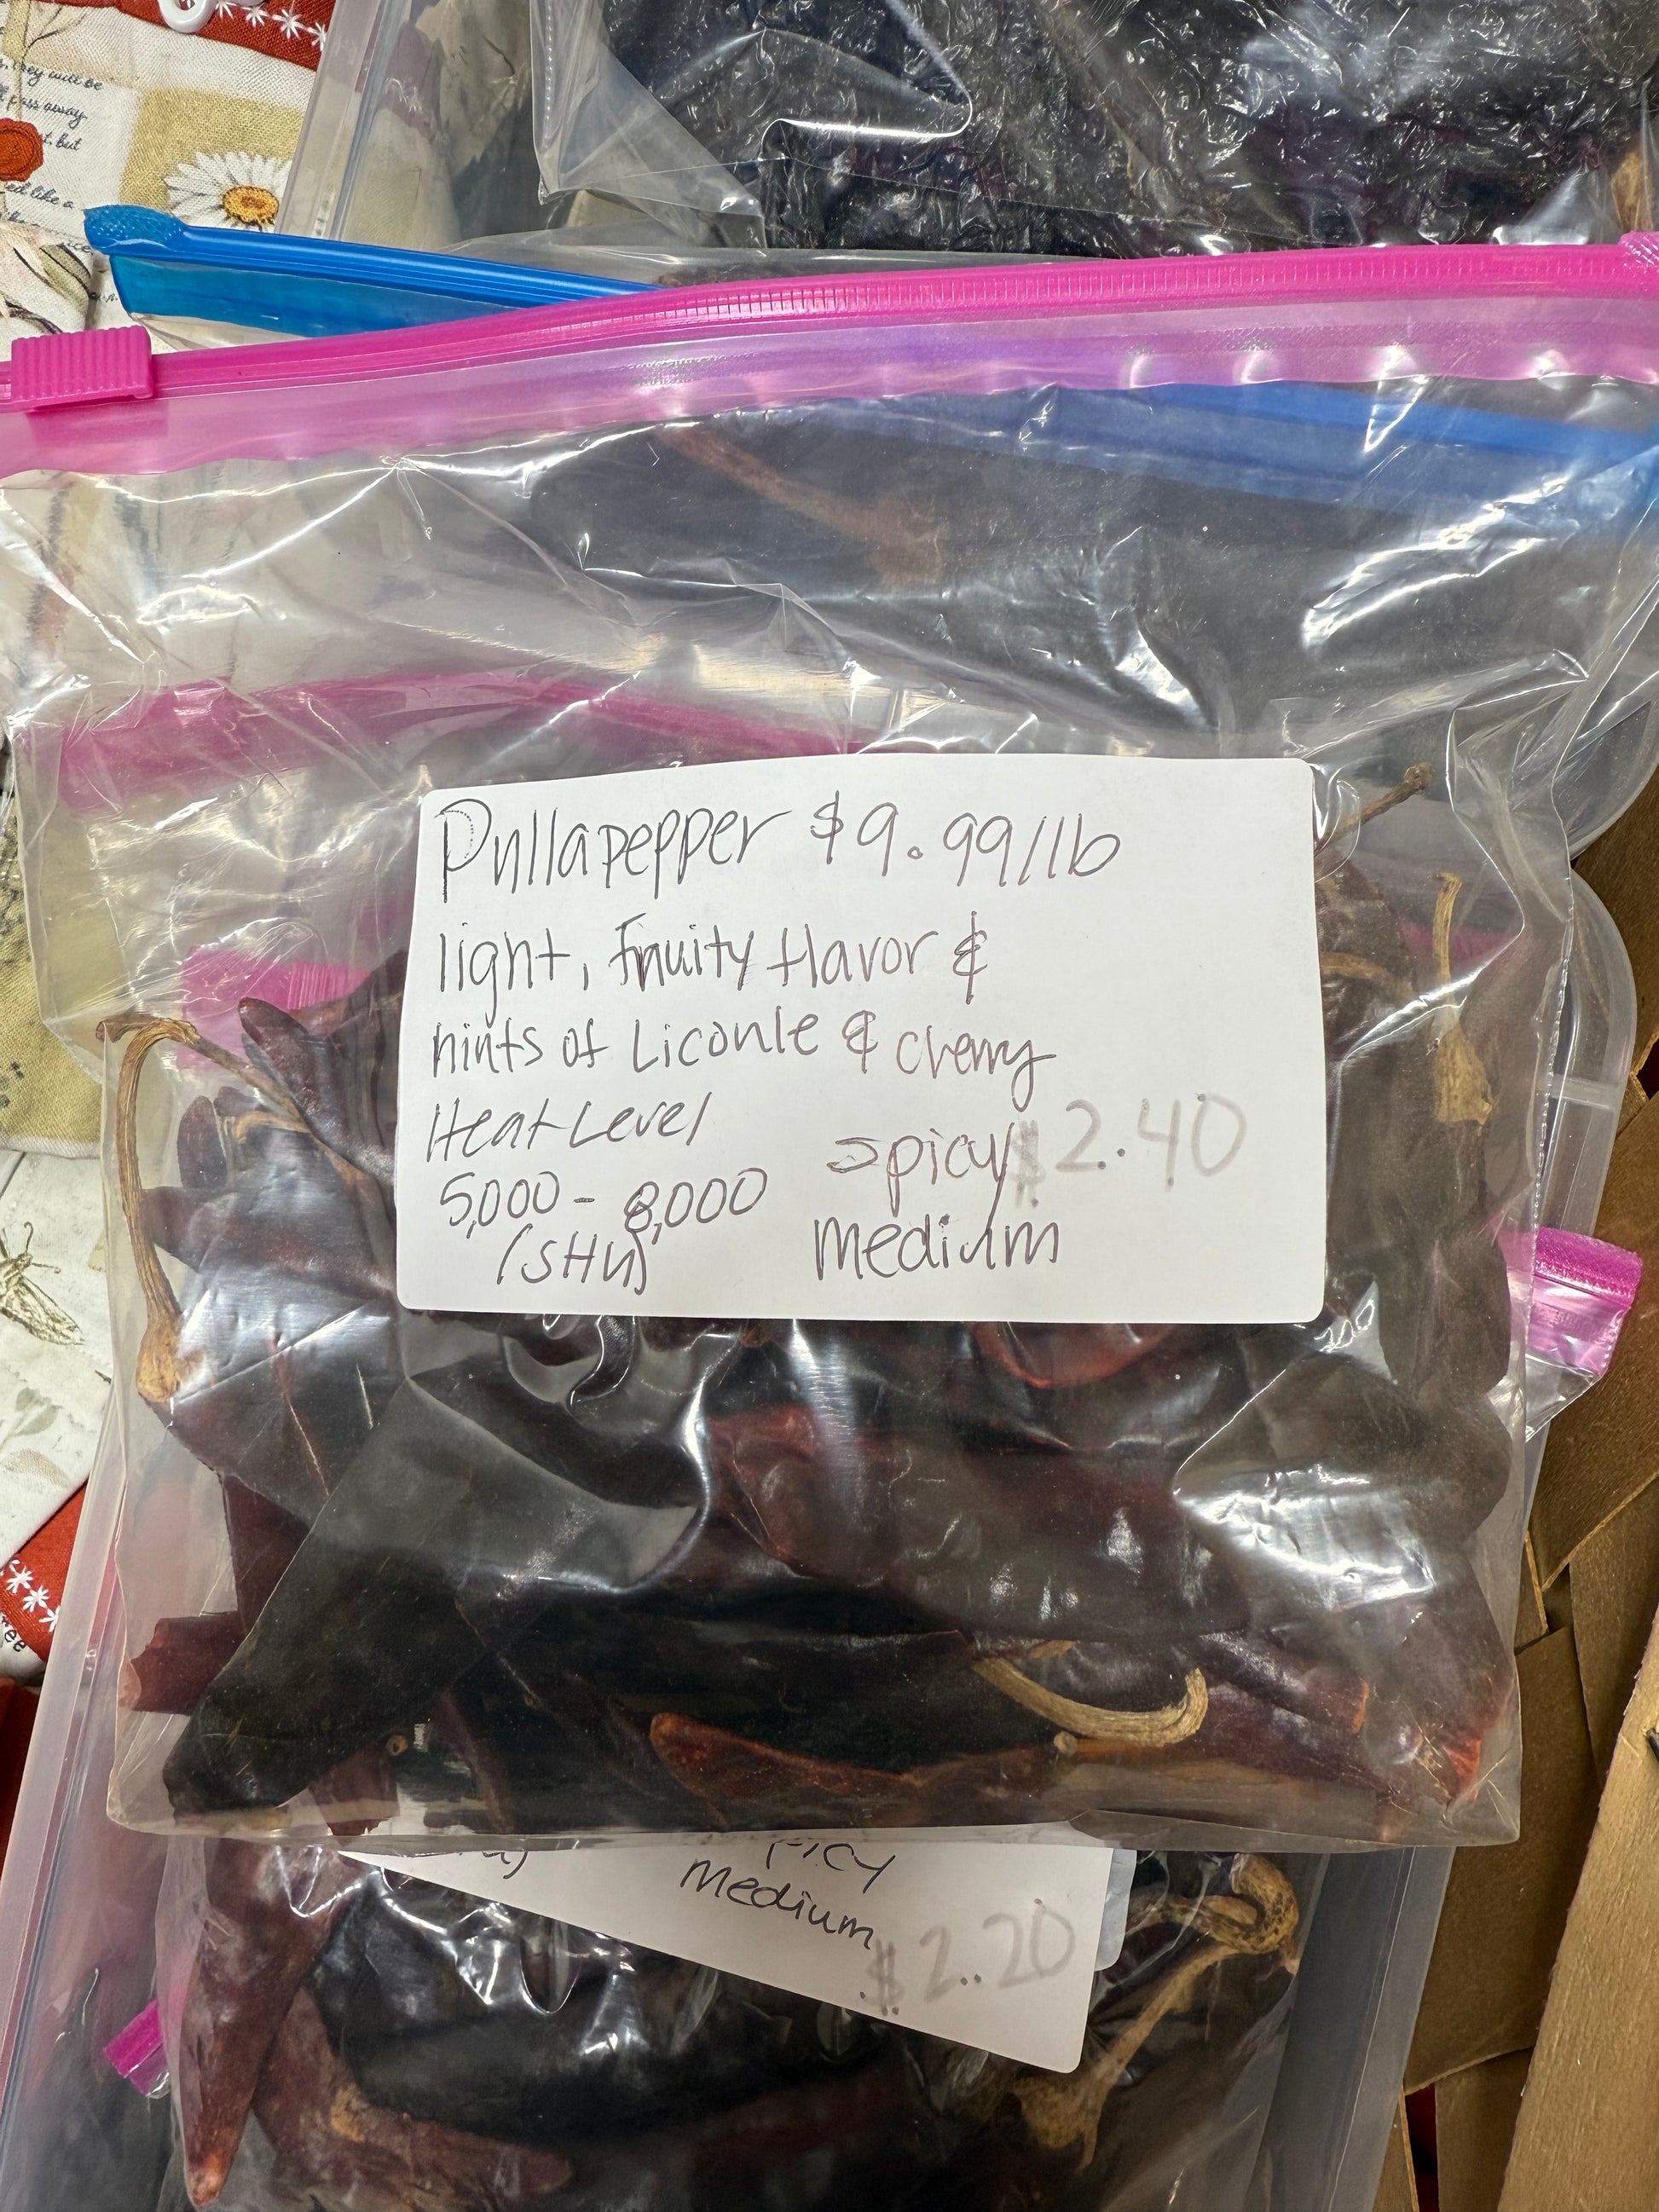 , they will be
pass away
t, but
ed like a
Pullapepper $9.99/lb
light, fruity flavor &
hints of Liconle & cherry
Heat Level
5,000 - 8,000
(SHU)
spicy $2.40
medium
picy
Medium
$2.20
ree